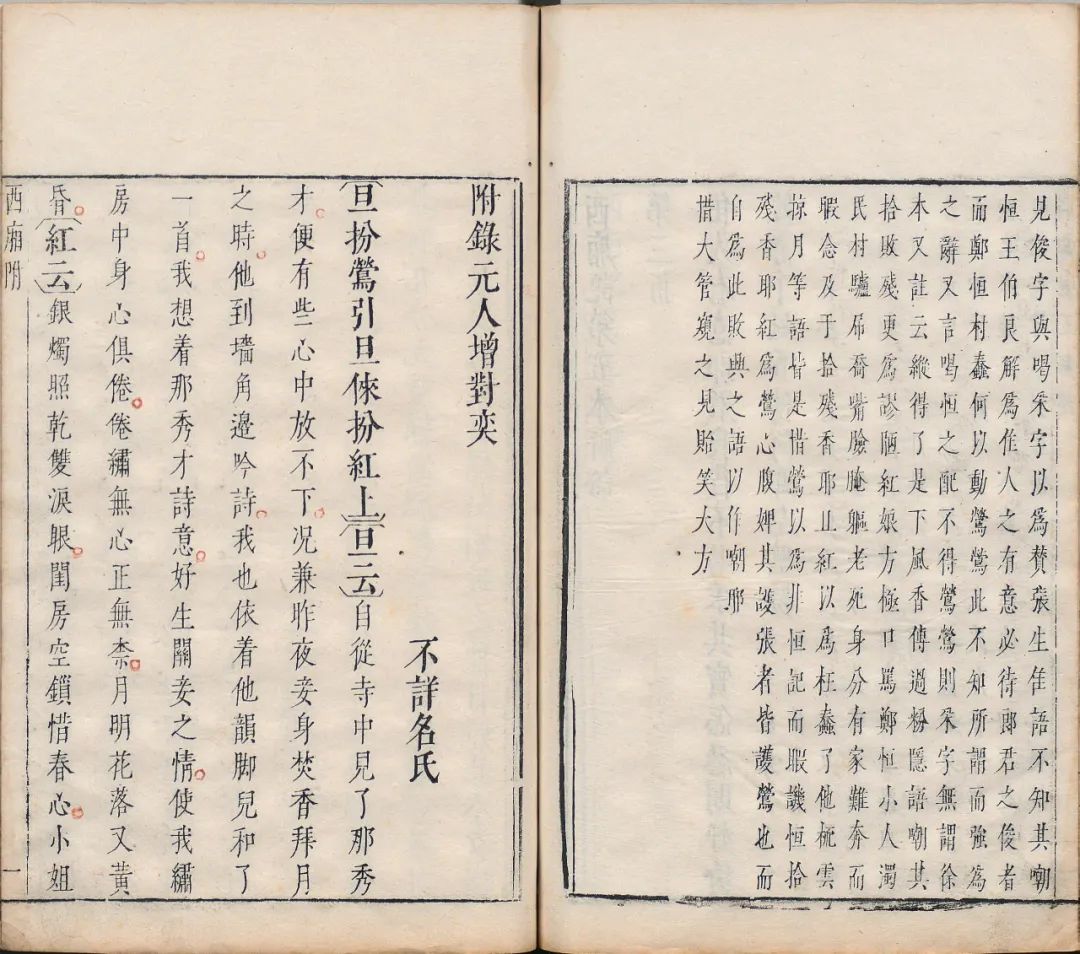 見俊字與喝采字以爲贊張生隹語不知其嘲
恒王伯良解爲隹人之有意必待郎君之俊者
而鄭恒村蠢何以動鶯鶯此不知所謂而強爲
之辭又言喝恒之配不得鶯鶯則采字無謂徐
本又註云縱得了是下風香傅過粉隱語嘲其
拾敗殘更爲謬陋紅娘方極口罵鄭恒小人濁
民村驢屌喬嘴臉腌軀老死身分有家難奔而
暇念及于拾殘香耶且紅以爲枉蠢了他梳雲
掠月等語皆是惜鶯以爲非恒記而暇譏恒拾
殘香耶紅爲鶯心腹婢其護張者皆護鶯也而
自爲此敗興之語以作嘲耶
措大管窺之見貽笑大方
附錄元人增對奕
不詳名氏
旦扮鶯引旦倈扮紅上旦云自從寺中見了那秀
才便有些心中放不下况兼昨夜妾身焚香拜月
之時他到墻角邉吟詩我也依着他韻脚兒和了
一首我想着那秀才詩意好生關妾之情使我繡
房中身心俱倦倦繡無心正無柰月明花落又黃
昏紅云銀燭照乾雙淚眼閨房空鎖惜春心小姐
西廂附
一